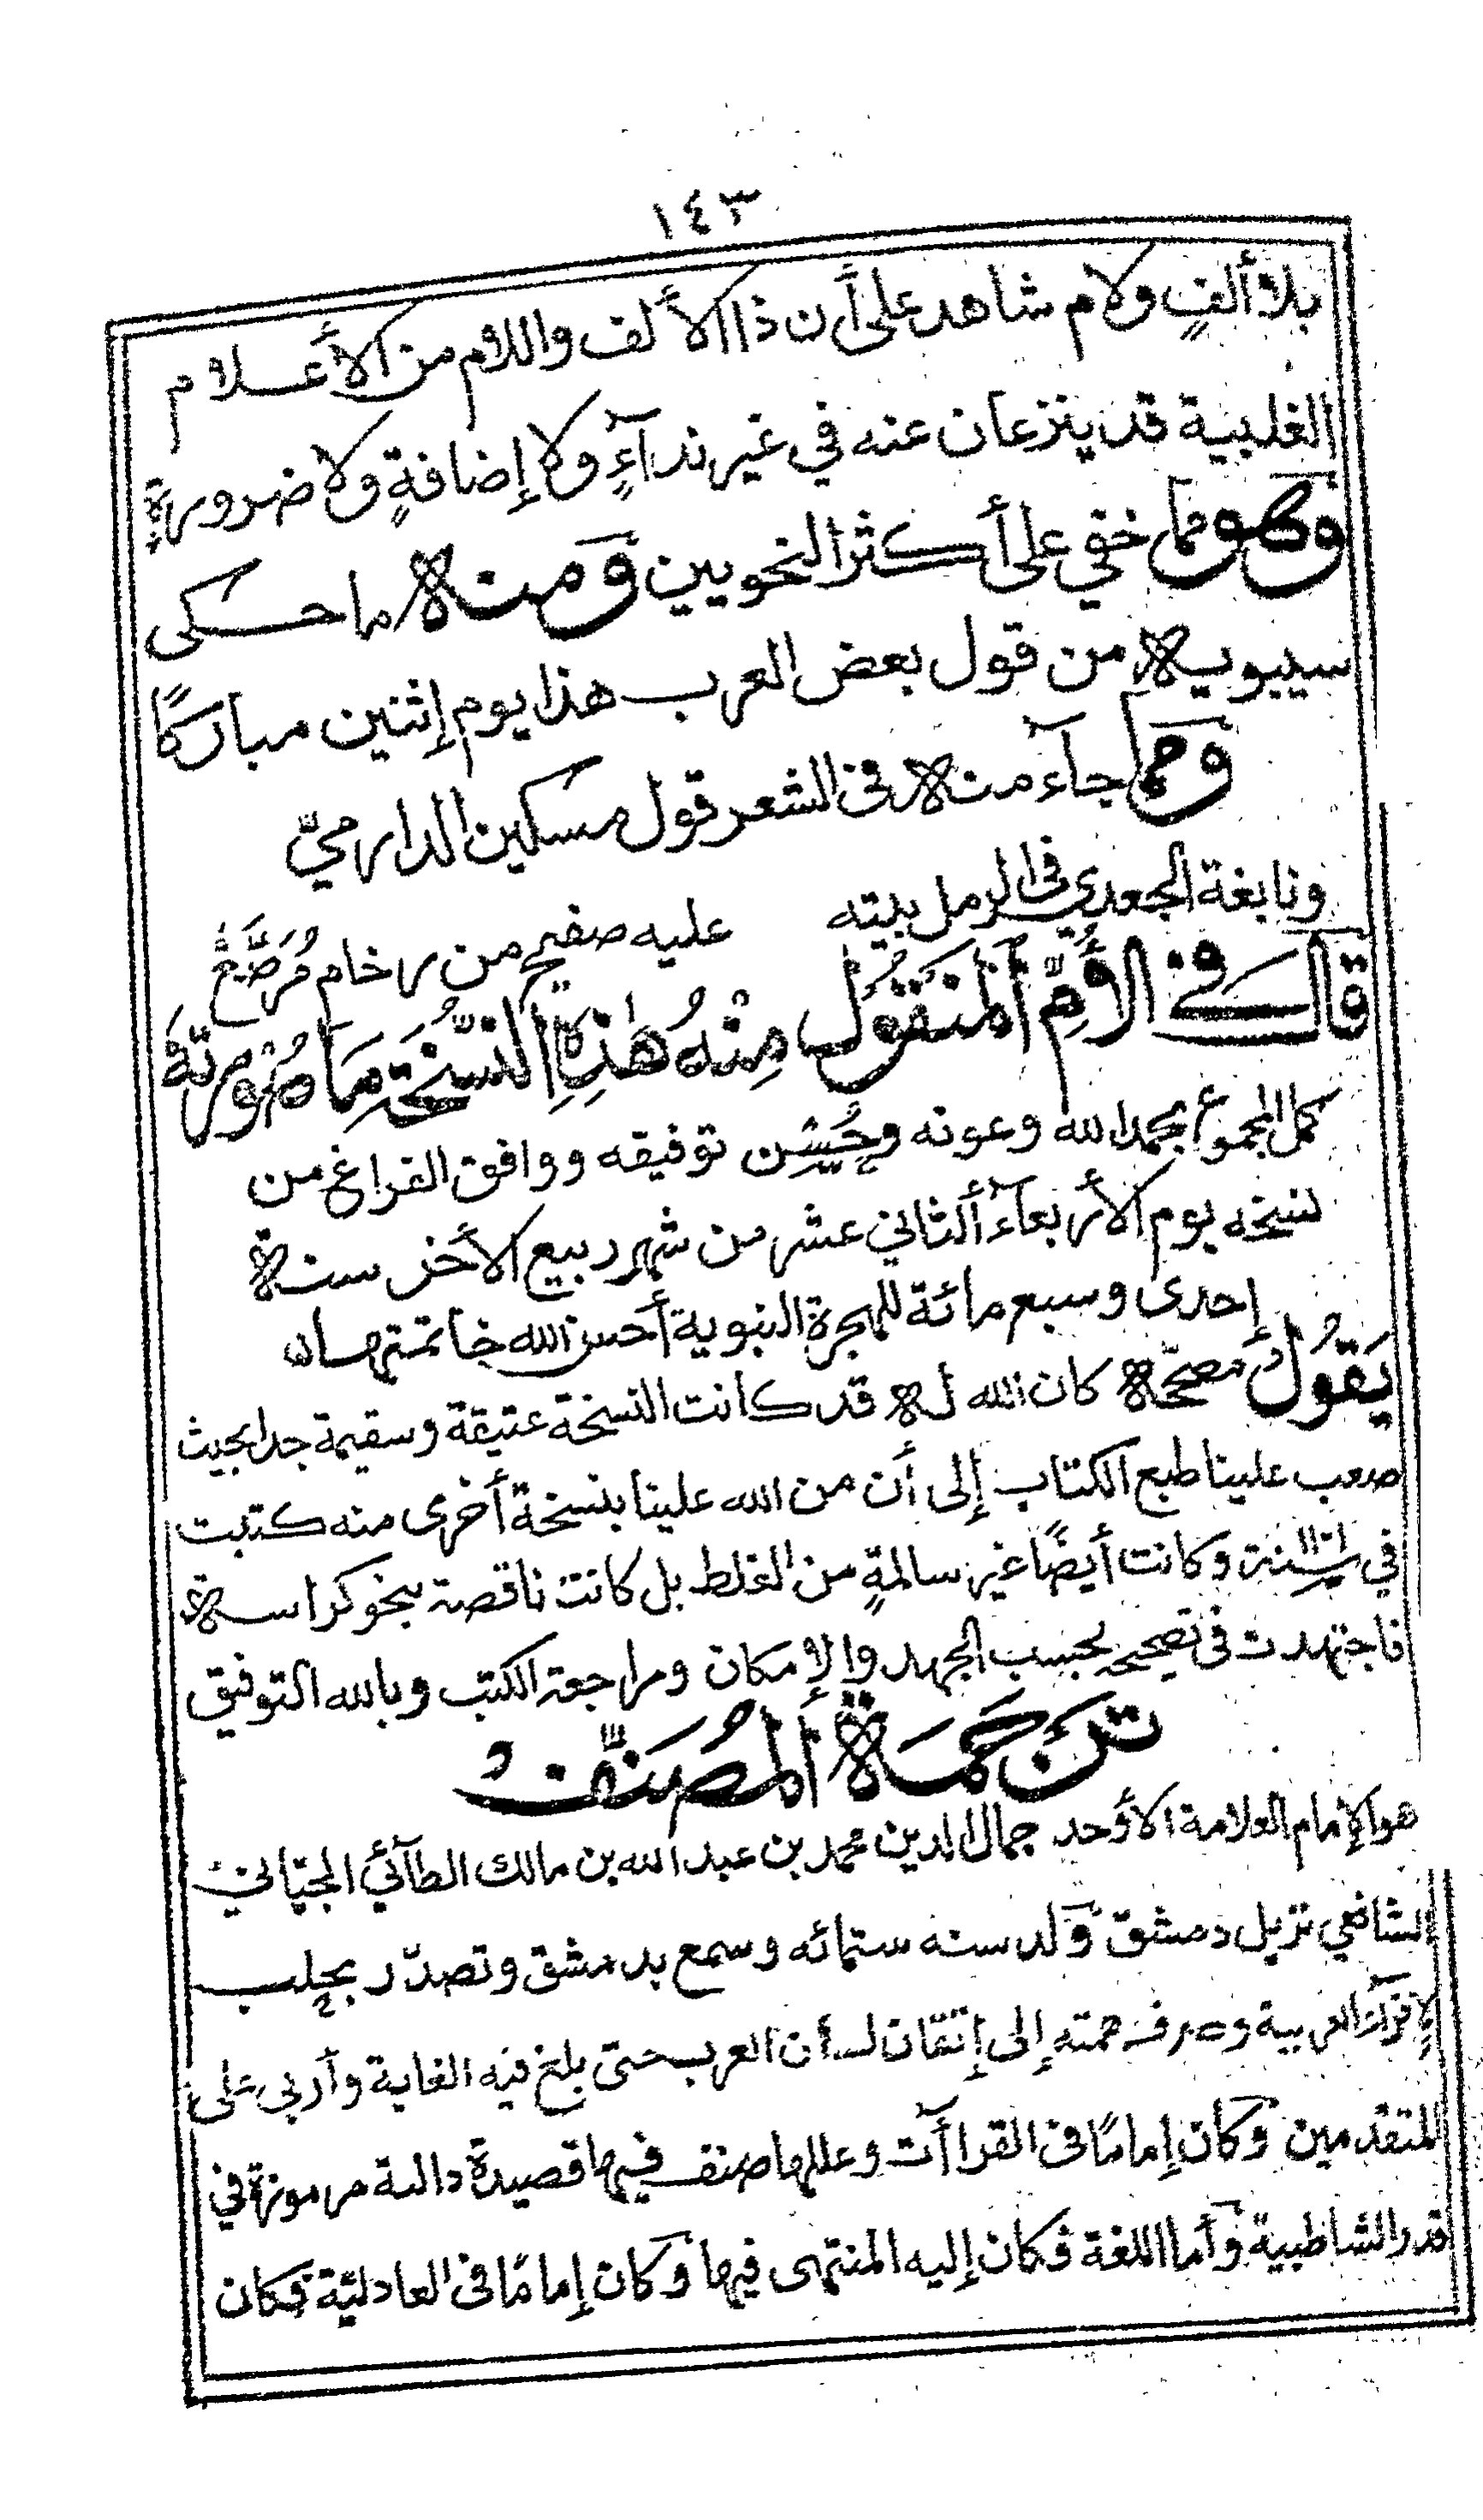 ١٤٣
بلا ألفٍ ولام شاهد على أن ذا الألف واللام من الأعلام
الغلبية قد ينزعان عنه في غير ندآءٍ ولا إضافةٍ ولا ضرورةٍ
وهو مما خفي على أكثر النحويين ومنه ما حكى
سيبويه من قول بعض العرب هذا يوم إثنين مباركًا
ومما جآء منه في الشعر قول مسكين الدارميّ
ونابغة الجعدي في الرمل بيته عليه صفيح من رخام مُرَصَّعُ
قال في الأُمِّ المَنقُولِ مِنْهُ هٰذِهِ النُّسْخَةِ مَا صُوْرَتُهُ
كمل المجموع بحمد الله وعونه وحُسْن توفيقه ووافق الفراغ من
نسخه يوم الأربعآء الثاني عشر من شهر ربيع الأخر سنة
إحدى وسبع مائة للهجرة النبوية أحسن الله خاتمتها
يَقُولُ مصحّحه كان الله له قد كانت النسخة عتيقة وسقيمة جدا بحيث
صعب علينا طبع الكتاب إلى أن من الله علينا بنسخة أخرى منه كتبت
في سنة وكانت أيضًا غير سالمةٍ من الغلط بل كانت ناقصة بنحو كراسة
فاجتهدت في تصحيحه بحسب الجهد والإمكان ومراجعة الكتب وبالله التوفيق
تَرْجَمَةُ المُصَنِّفِ
هو الإمام العلامة الأوحد جمال الدين محمد بن عبد الله بن مالك الطآئي الجيّاني
الشافعي نزيل دمشق ولد سنه ستمائه وسمع بدمشق وتصدّر بحلب
لإقرآء العربية وصرف همته إلى إتقان لسان العرب حتى بلغ فيه الغاية وأربى على
المتقدّمين وكان إمامًا في القراآت وعللها صنف فيها قصيدة دالية مرموزة في
قدر الشاطبية وأما اللغة فكان إليه المنتهى فيها وكان إمامًا في العادليّة فكان